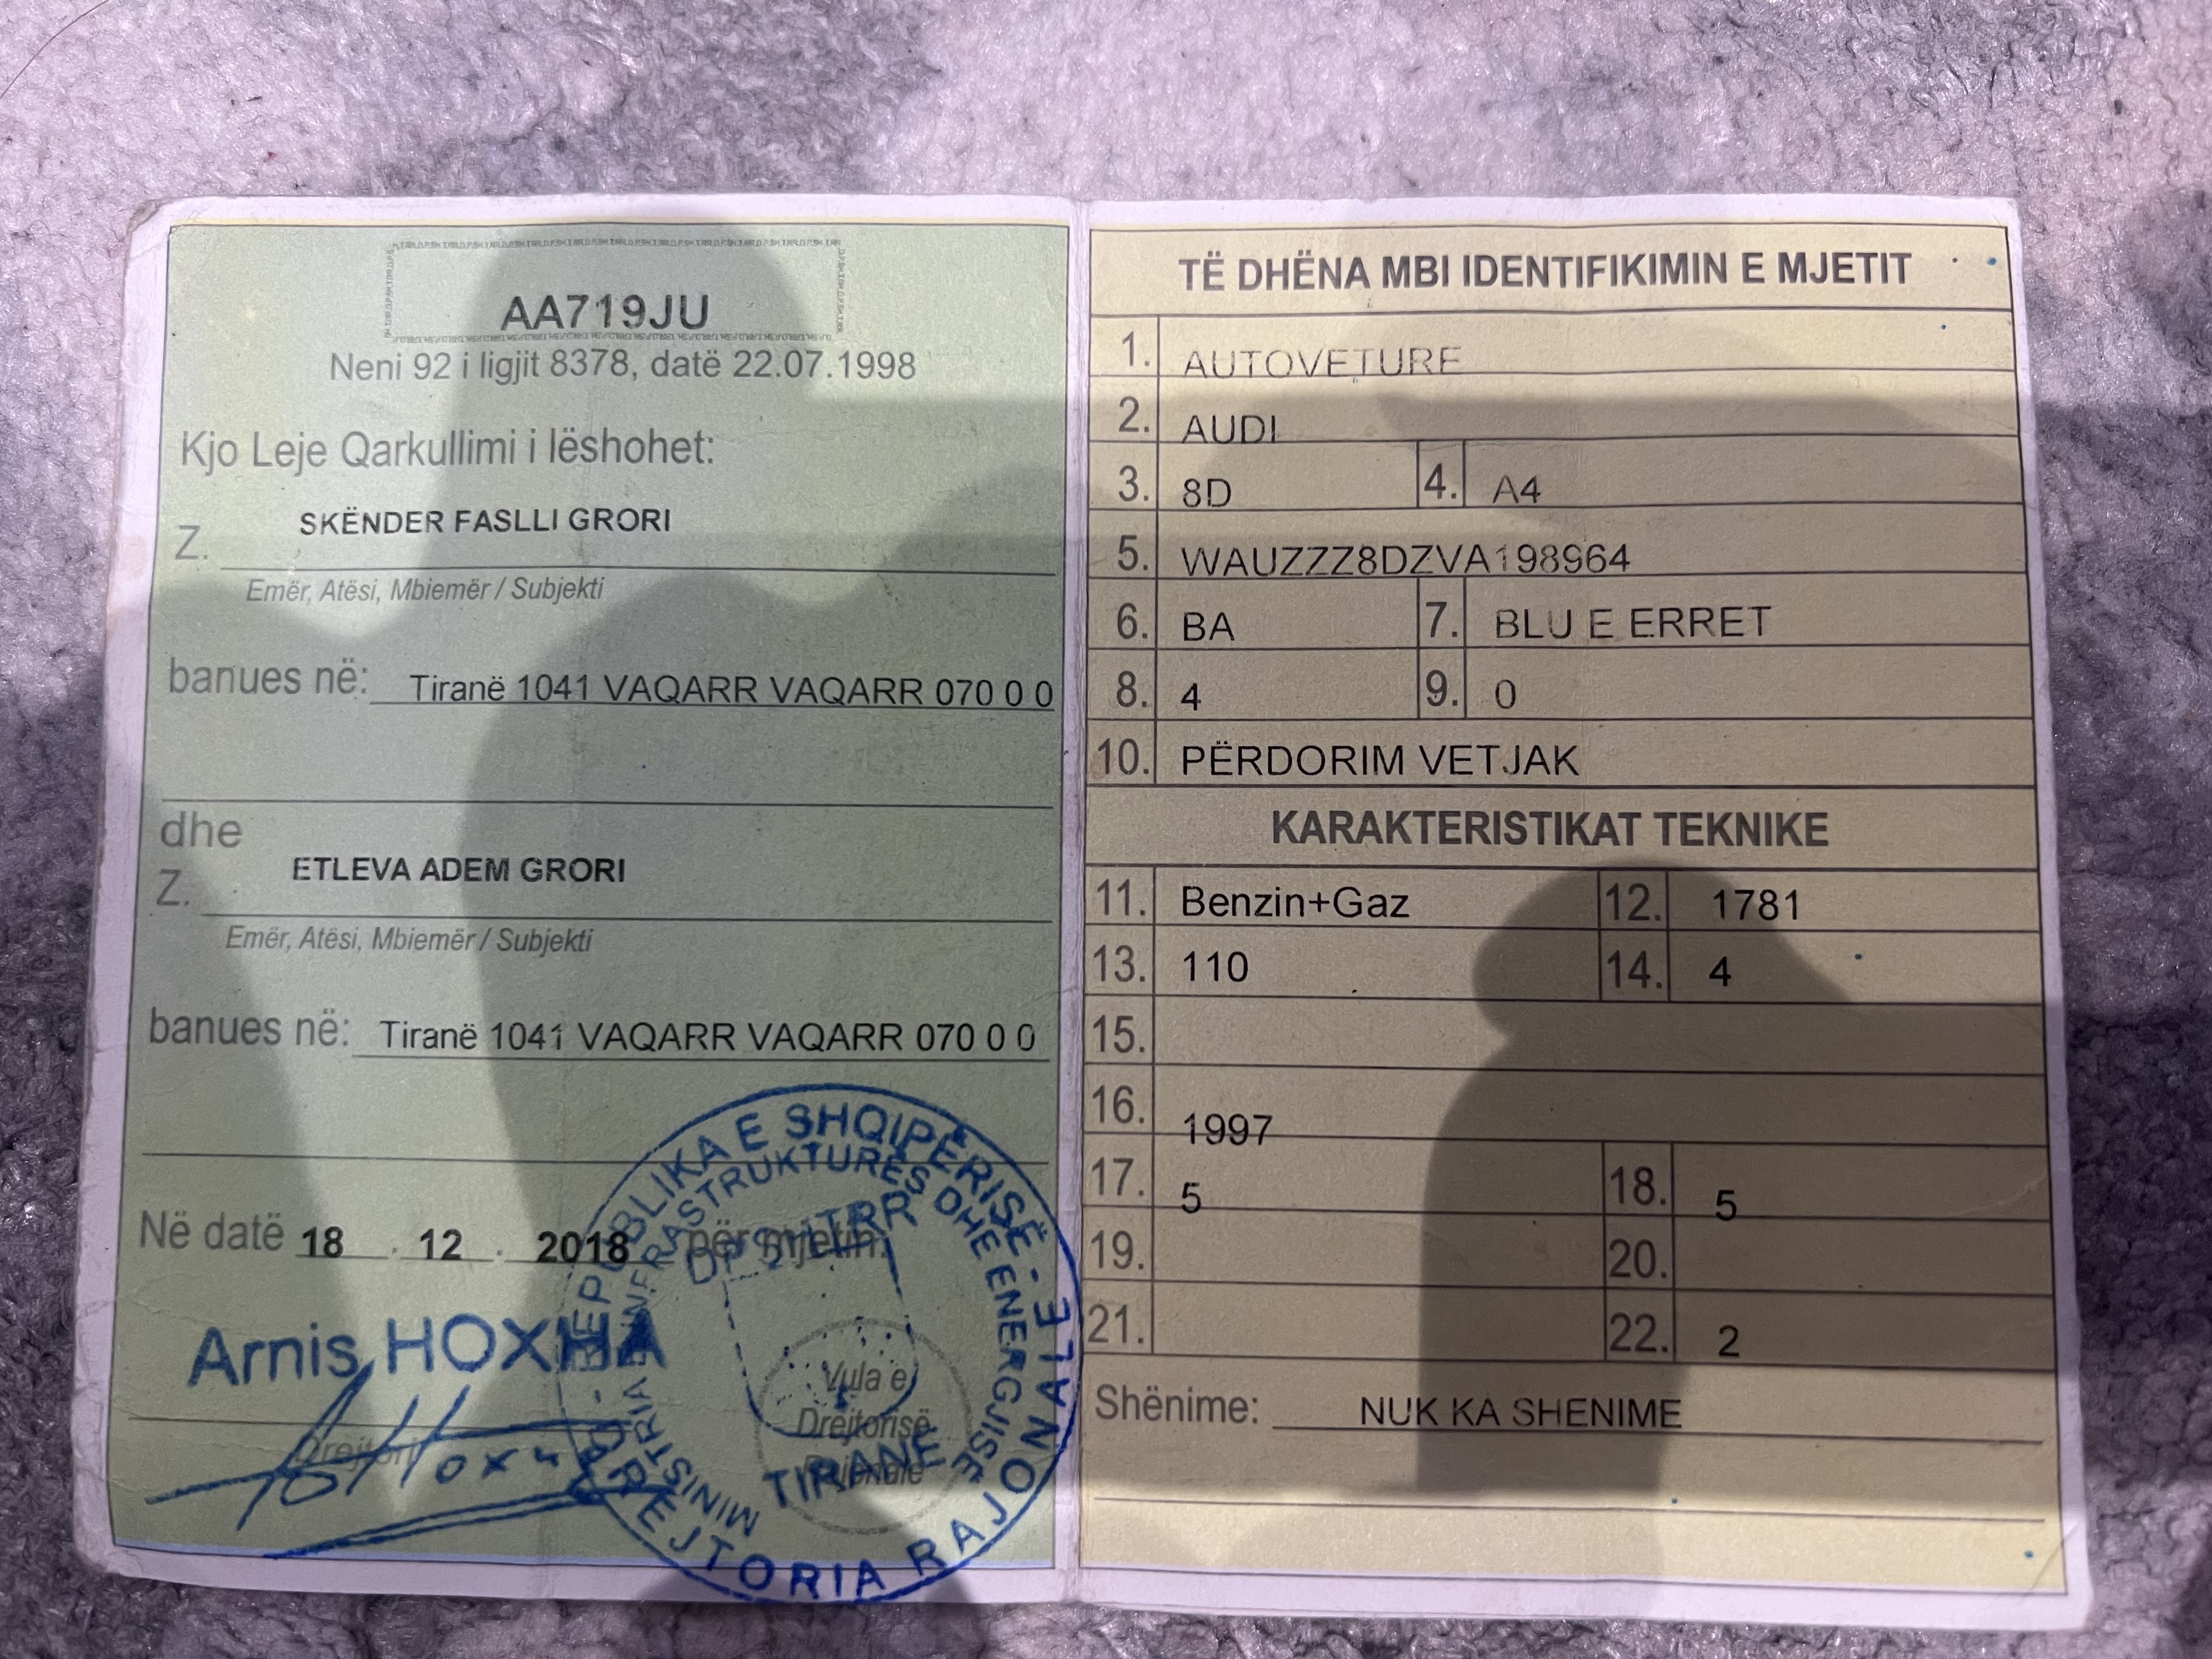 AA719JU
Neni 92 i ligjit 8378, datë 22.07.1998
Kjo Leje Qarkullimi i lëshohet:
SKËNDER FASLLI GRORI
Z.
Emër, Atësi, Mbiemër / Subjekti
banues në: Tiranë 1041 VAQARR VAQARR 070 0 0
dhe
ETLEVA ADEM GRORI
Z.
Emër, Atësi, Mbiemër / Subjekti
banues në: Tiranë 1041 VAQARR VAQARR 070 0 0
Në datë 18 . 12 . 2018 për mjetin:
Arnis HOXHA
Drejtori
REPUBLIKA E SHQIPËRISË
MINISTRIA E INFRASTRUKTURËS DHE ENERGJISË
DREJTORIA RAJONALE
DPSHTRR
TIRANË
Vula e
Drejtorisë
Rajonale
TË DHËNA MBI IDENTIFIKIMIN E MJETIT
1. AUTOVETURE
2. AUDI
3. 8D 4. A4
5. WAUZZZ8DZVA198964
6. BA 7. BLU E ERRET
8. 4 9. 0
10. PËRDORIM VETJAK
KARAKTERISTIKAT TEKNIKE
11. Benzin+Gaz 12. 1781
13. 110 14. 4
15.
16. 1997
17. 5 18. 5
19. 20.
21. 22. 2
Shënime: NUK KA SHENIME